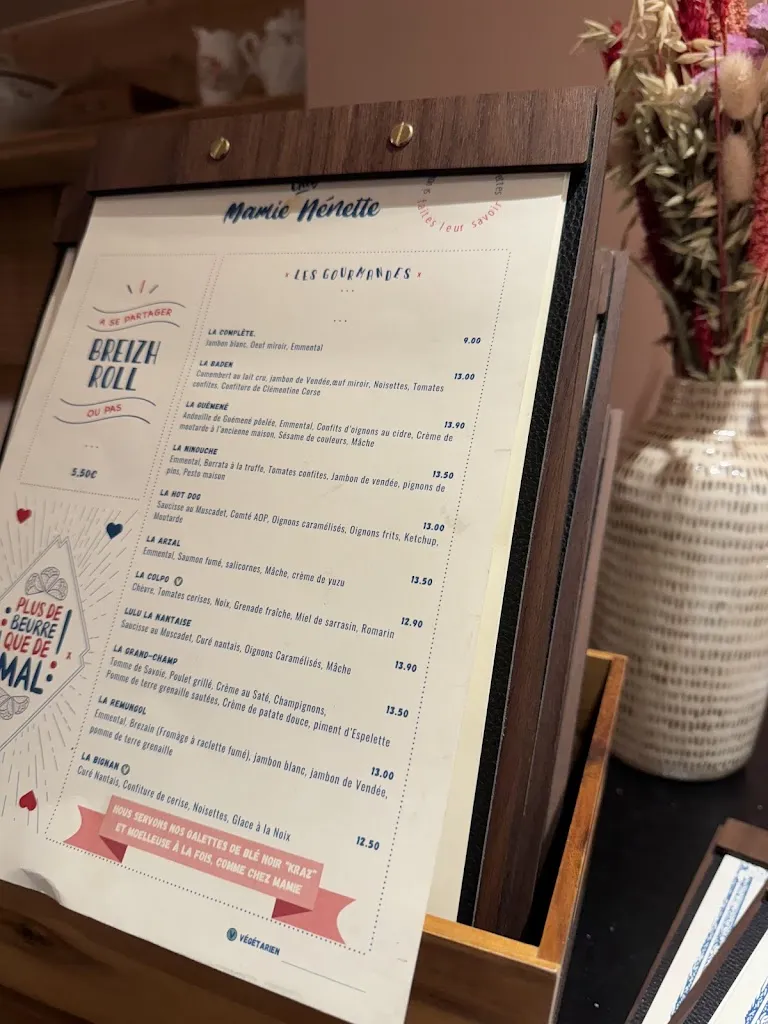 chez
Mamie Nénette
faites leur savoir
LES GOURMANDES
À SE PARTAGER
BREIZH
ROLL
OU PAS
5,50€
LA COMPLÈTE. 9.00
Jambon blanc, Oeuf miroir, Emmental
LA BADEN 13.00
Camembert au lait cru, jambon de Vendée,œuf miroir, Noisettes, Tomates
confites, Confiture de Clémentine Corse
LA GUÉMENÉ 13.90
Andouille de Guémené pôelée, Emmental, Confits d'oignons au cidre, Crème de
moutarde à l'ancienne maison, Sésame de couleurs, Mâche
LA NINOUCHE 13.50
Emmental, Burrata à la truffe, Tomates confites, Jambon de vendée, pignons de
pins, Pesto maison
LA HOT DOG 13.00
Saucisse au Muscadet, Comté AOP, Oignons caramélisés, Oignons frits, Ketchup,
Moutarde
LA ARZAL 13.50
Emmental, Saumon fumé, salicornes, Mâche, crème de yuzu
LA COLPO V 12.90
Chèvre, Tomates cerises, Noix, Grenade fraîche, Miel de sarrasin, Romarin
LULU LA NANTAISE 13.90
Saucisse au Muscadet, Curé nantais, Oignons Caramélisés, Mâche
LA GRAND-CHAMP 13.50
Tomme de Savoie, Poulet grillé, Crème au Saté, Champignons,
Pomme de terre grenaille sautées, Crème de patate douce, piment d'Espelette
LA REMUNGOL 13.00
Emmental, Brezain (Fromage à raclette fumé), jambon blanc, jambon de Vendée,
pomme de terre grenaille
LA BIGNAN V 12.50
Curé Nantais, Confiture de cerise, Noisettes, Glace à la Noix
PLUS DE
BEURRE
QUE DE
MAL!
NOUS SERVONS NOS GALETTES DE BLÉ NOIR "KRAZ"
ET MOELLEUSE À LA FOIS, COMME CHEZ MAMIE
V VÉGÉTARIEN